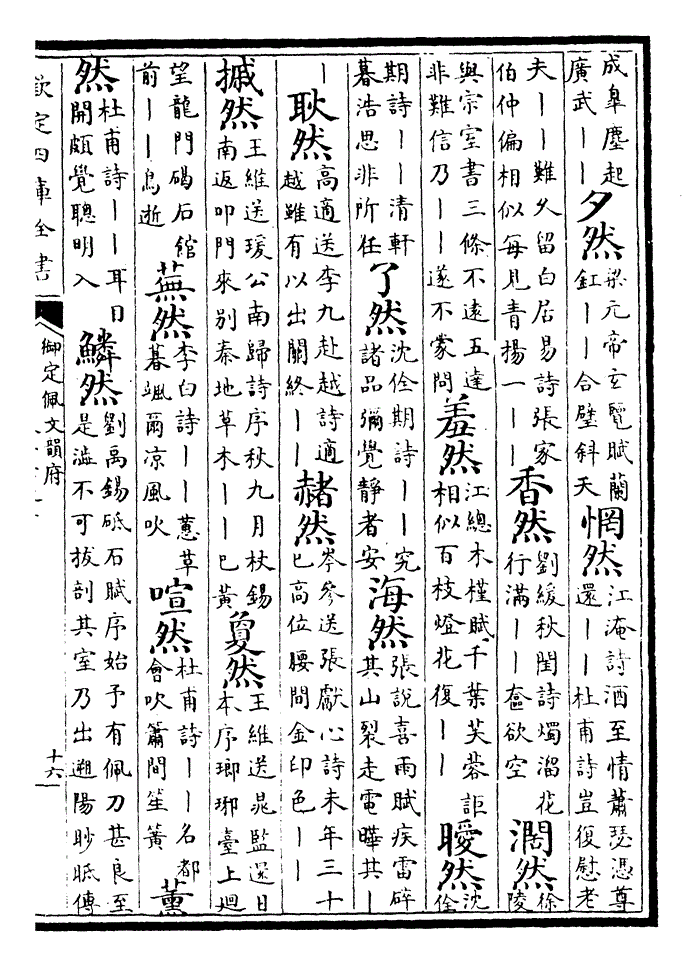 成臯塵起
廣武丨丨
夕然
梁元帝玄覽賦蘭
釭丨丨合璧斜天
惘然
江淹詩酒至情蕭瑟憑尊
還丨丨杜甫詩豈復慰老
夫丨丨難久留白居易詩張家
伯仲偏相似每見青揚一丨丨
香然
劉緩秋閨詩燭溜花
行滿丨丨奩欲空
濶然
徐
陵
與宗室書三條不遠五達
非難信乃丨丨遂不蒙問
羞然
江總木槿賦千葉芙蓉詎
相似百枝燈花復丨丨
曖然
沈
佺
期詩丨丨清軒
暮浩思非所任
了然
沈佺期詩丨丨究
諸品彌覺靜者安
海然
張說喜雨賦疾雷碎
其山裂走電曄其丨
丨
耿然
高適送李九赴越詩適
越雖有以出關終丨丨
赭然
岑參送張獻心詩未年三十
已高位腰間金印色丨丨
摵然
王維送瑗公南歸詩序秋九月杖錫
南返叩門來別秦地草木丨丨已黃
敻然
王維送晁監還日
本序瑯琊臺上廻
望龍門碣石館
前丨丨鳥逝
蕪然
李白詩丨丨蕙草
暮颯爾凉風吹
喧然
杜甫詩丨丨名都
會吹簫間笙簧
薰
然
杜甫詩丨丨耳目
開頗覺聰明入
鱗然
劉禹錫砥石賦序始予有佩刀甚良至
是澁不可拔剖其室乃出遡陽眇眂傳
欽定四庫全書
御定佩文韻府
十六